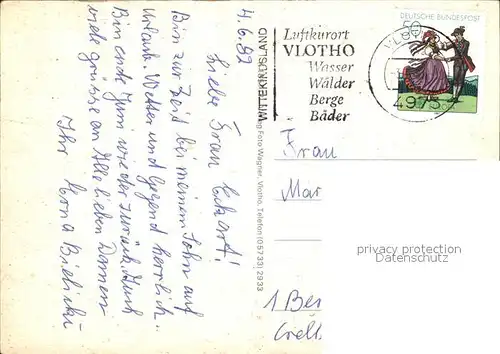 4.6.82
Liebe Frau Eckart!
Bin zur Zeit bei meinem Sohn auf
Urlaub. Wetter und Gegend herrlich.
Bin end Juni wieder zurück.
viele grüsse an Alle lieben Damen
Ihr
WITTEKINDSLAND
Foto Wagner, Vlotho, Telefon (05733) 2933
Luftkurort
VLOTHO
Wasser
Wälder
Berge
Bäder
DEUTSCHE BUNDESPOST
4973
Frau
Mar
privacy protection
Datenschutz
1 Ber